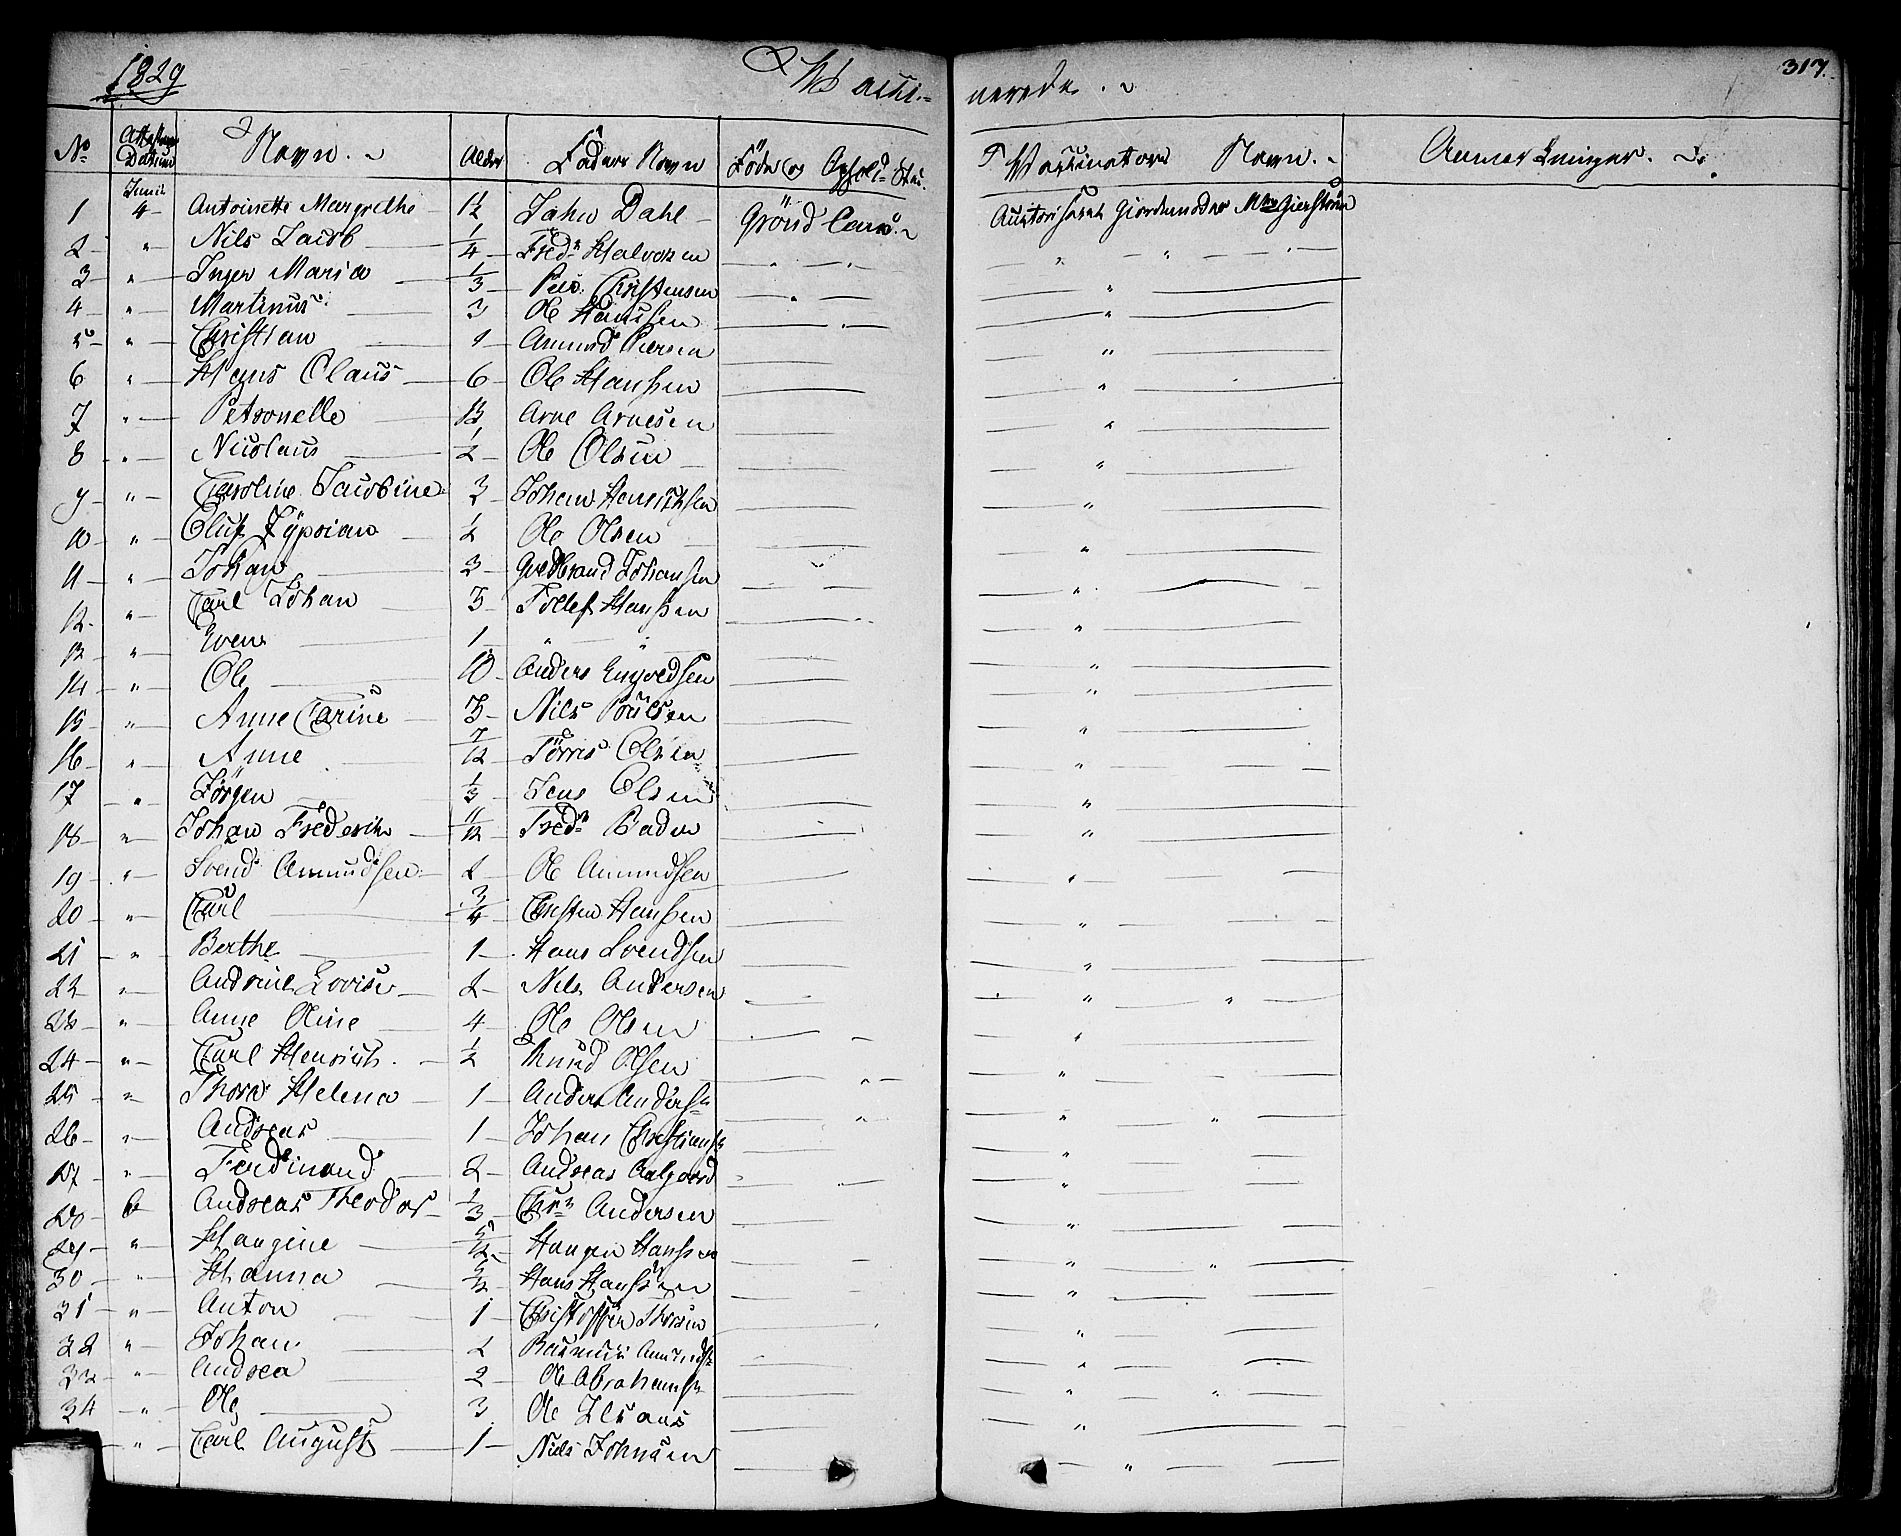 1829 Vacci-nerede. 317.
No Attestens Datum Navn. Alder Faders Navn Føde og Ophold-Sted. Vaccinators Navn. Anmerkninger.
Junii
1 4 Antoinette Margrethe 1½ Johan Dahl Grönd Autoriseret Giordemoder
2 " Nils Jacob 1/4 Fredr Halvorsen " "
3 " Inger Maria 1/3 Christensen " "
4 " Martinus 3 Ole Hanssen " "
5 " Christian 1 Amund "
6 " Hans Claus 6 Ole Hanssen "
7 " Petronelle 1½ Arne Arnesen "
8 " Nicolaus 1/2 Ole Olsen "
9 " Caroline Jacobine Johan "
10 " Oluf Zyprian 1/2 Ole Olsen "
11 " Johan 3 Gudbrand Johansen "
12 " Carl Johan Tollef Hanssen "
13 " Even 1 " " "
14 " Ole 10 Anders Engvoldsen "
15 " Anne Carine Nils Poulsen "
16 " Anne 7/12 Törris Olsen "
17 " Jörgen 1/3 Jens Olsen "
18 " Johan Frederik 11/12 Fredr Baden "
19 " Svend Amundsen 2 Ole Amundsen "
20 " Carl 3/4 Christen Hanssen "
21 " Berthe 1 Hans Svendsen "
22 " Andrine Lovise 2 Nils Andersen " "
23 " Anne Oline 4 Ole Olsen "
24 " Carl Henrich 1/2 Knud Olsen " "
25 " Thora Helena 1 Anders Andersn " " "
26 " Andreas 1 Johan Christiansn "
27 " Ferdinand 2 Andreas Aalgaard "
28 6 Andreas Theodor 1/3 Chr. Andersen "
29 " Haugine 5/12 Haagen Hanssen " "
30 " Hanna Hans Hanssen "
31 " Anton 1 Christoffer "
32 " Johan 2 Rasmus Amundsn "
33 " Andrea 2 Ole Abrahamsn " "
34 " Ole 3 Ole "
" Carl August 1 Niels Johnsen "